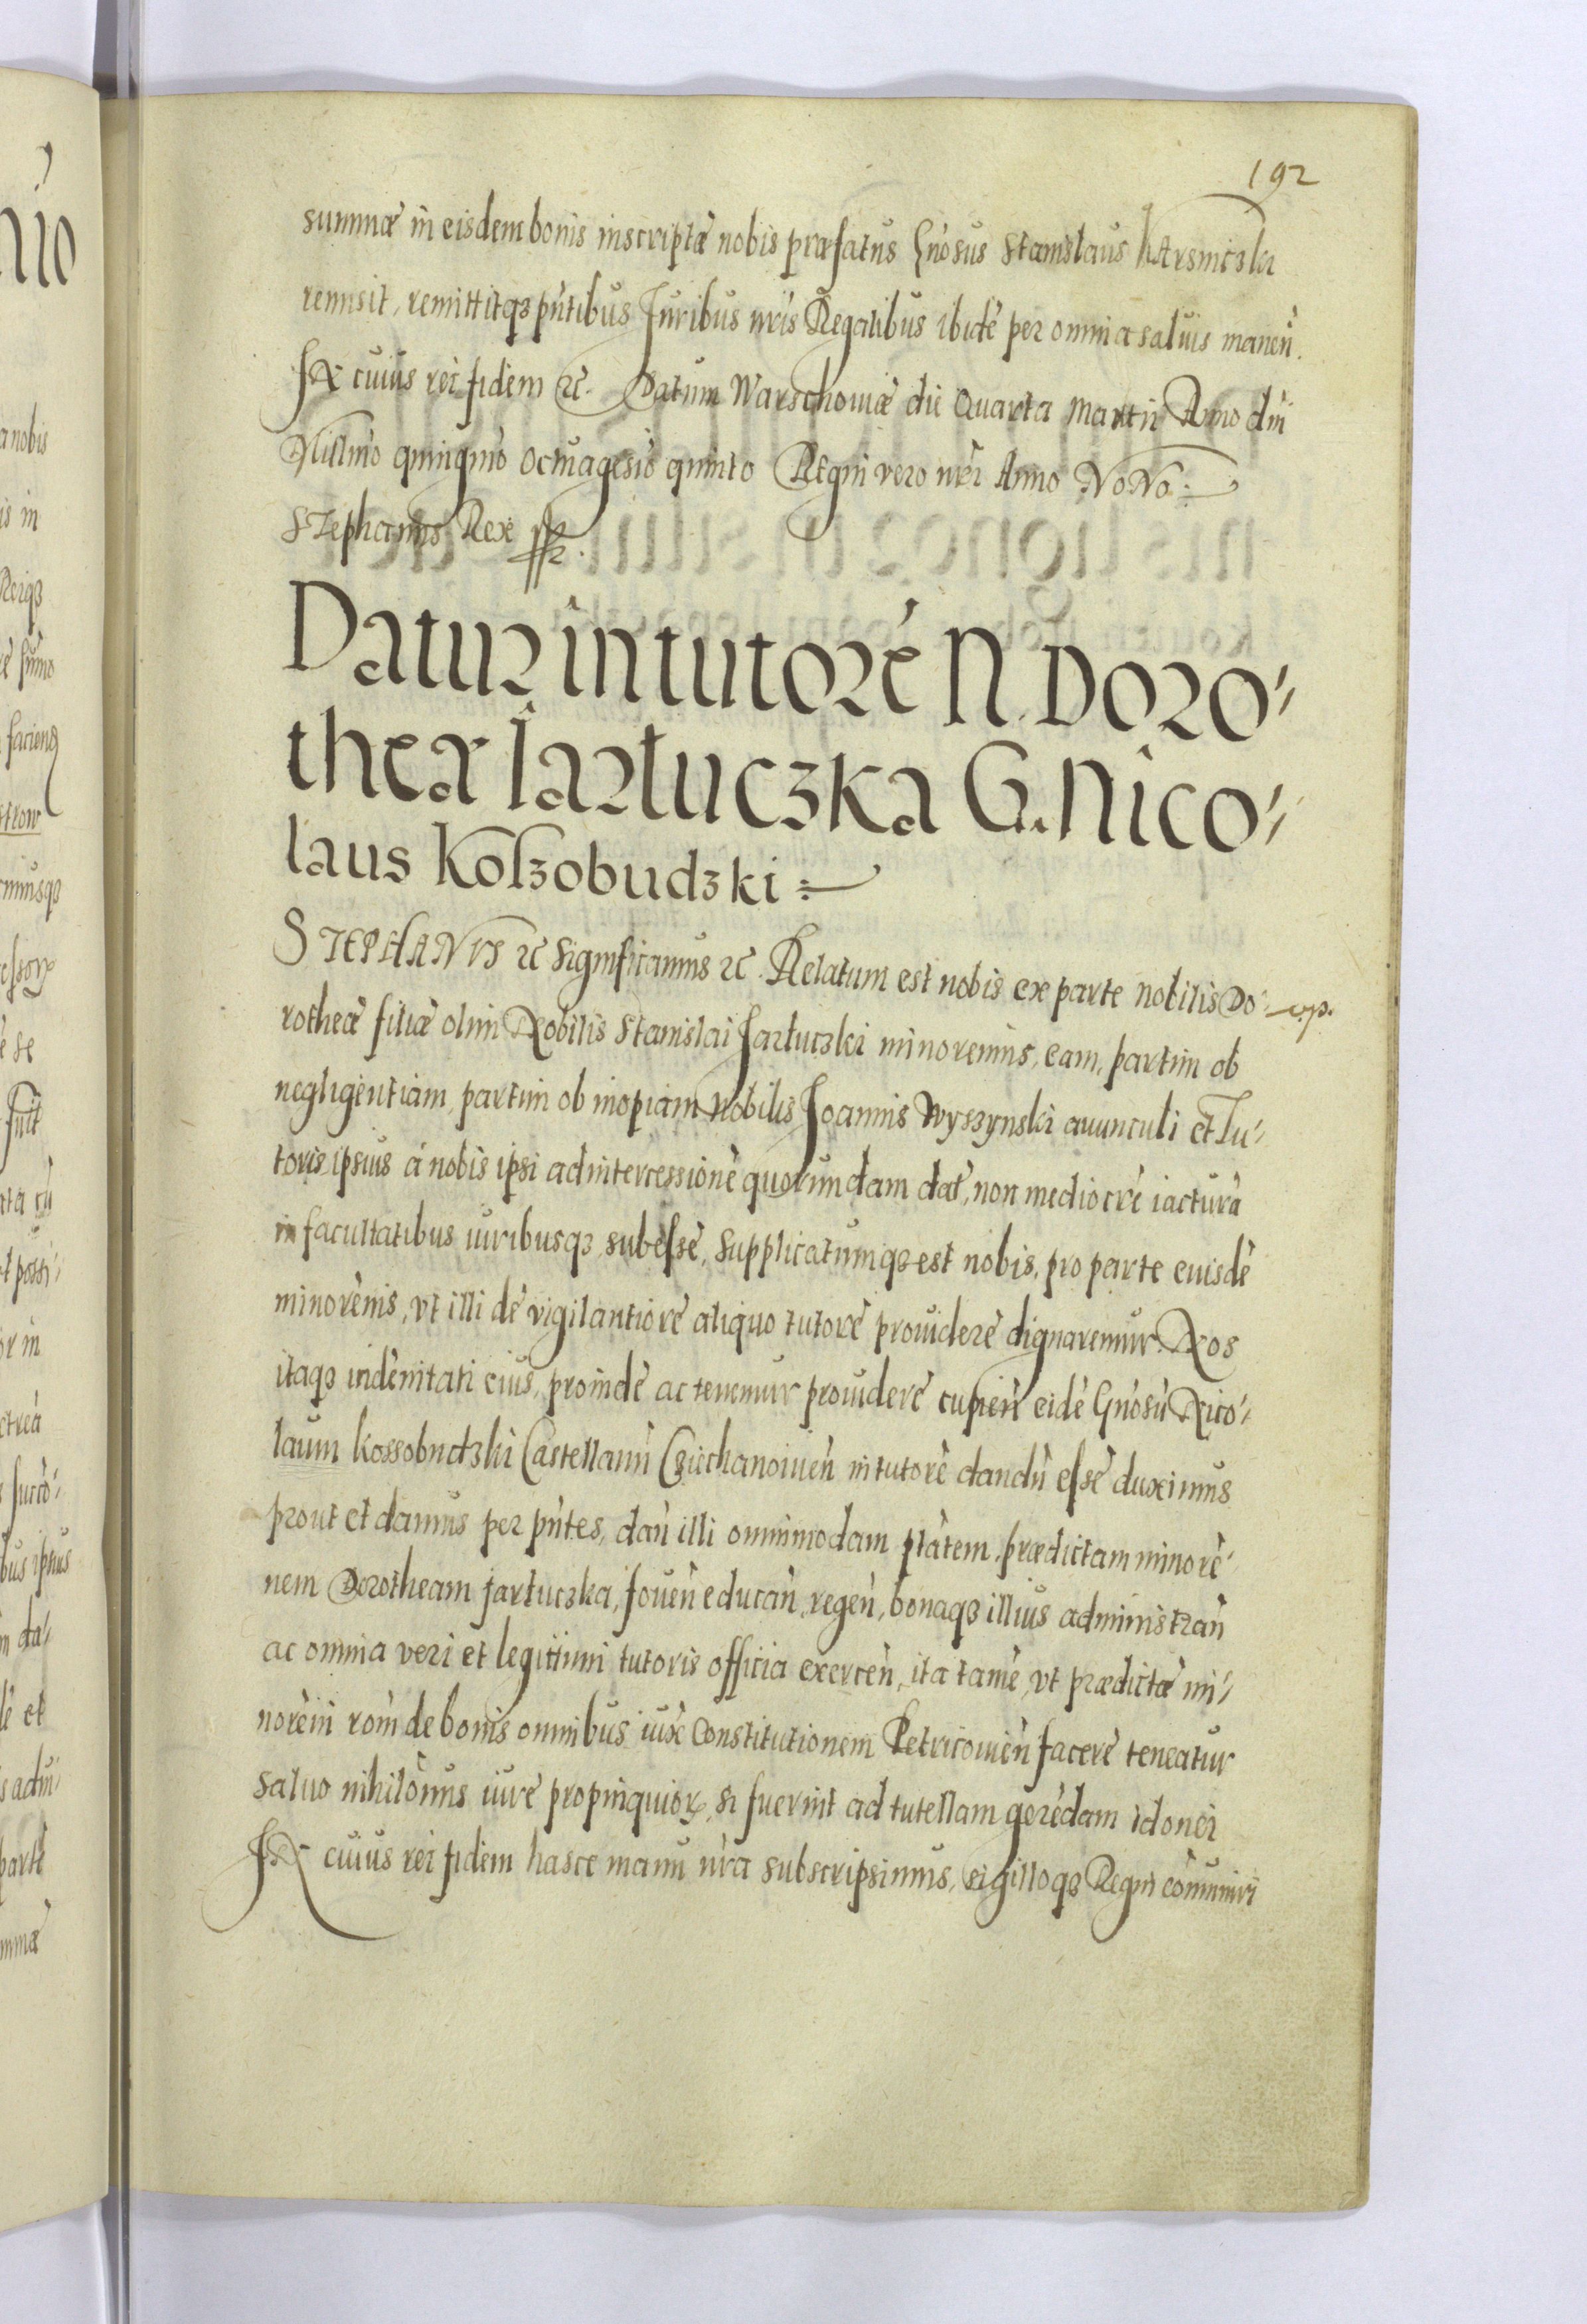 192
summæ in eisdem bonis inscriptæ nobis præfatus Gnosus Stanislaus karsniczki
remisit, remittitqꝫ pntibus Juribus nris Regalibus ibidē per omnia saluis manen̄.
In cuius rei fidem ⁊c. Datum Warschouiæ die Quarta Martii Anno dni
Millmo quingmo octuagesio quinto Regni vero nri Anno NoNo
Stephanus Rex
Datur in tutorē N. Doro-
theæ Jarłuczka G. Nico-
laus Koszobudzki
STEPHANVS ⁊c significamus ⁊c. Relatum est nobis ex parte nobilis Do-
rotheæ filiæ olim Nobilis Stanislai Jarłuczki minorennis, eam, partim ob
negligentiam, partim ob inopiam Nobilis Joannis Wyszynski auunculi et Tu-
toris ipsius á nobis ipsi ad intercessionē quorundam dat, non mediocrē iacturā
in facultatibus iuribusqꝫ subesse, supplicatumqꝫ est nobis, pro parte eiusdē
minorēnis, vt illi de vigilantiore aliquo tutore prouidere dignaremur. Nos
itaqꝫ indēnitati eius, proinde ac tenemur prouidere cupien̄ eidē Gnosū Nico-
laum Kossobudzki Castellanū Cziechanouien̄ in tutorē dandū esse duximus
prout et damus per pntes, dan̄ illi omnimodam ptātem, prædictam minorē-
nem Dorotheam jarłuczka, fouen̄ educan̄, regen̄, bonaqꝫ illius administran̄
ac omnia veri et legitimi tutoris officia exercen̄, ita tamē, vt prædictæ mi-
norēni rōm de bonis omnibus iux̄ Constitutionem Petricouien̄ facere teneatur
saluo nihilōmus iure propinquioꝝ, si fuerint ad tutellam gerēdam idonei
In cuius rei fidem hasce manu nr̄a subscripsimus, sigilloqꝫ Regni cōmuniri